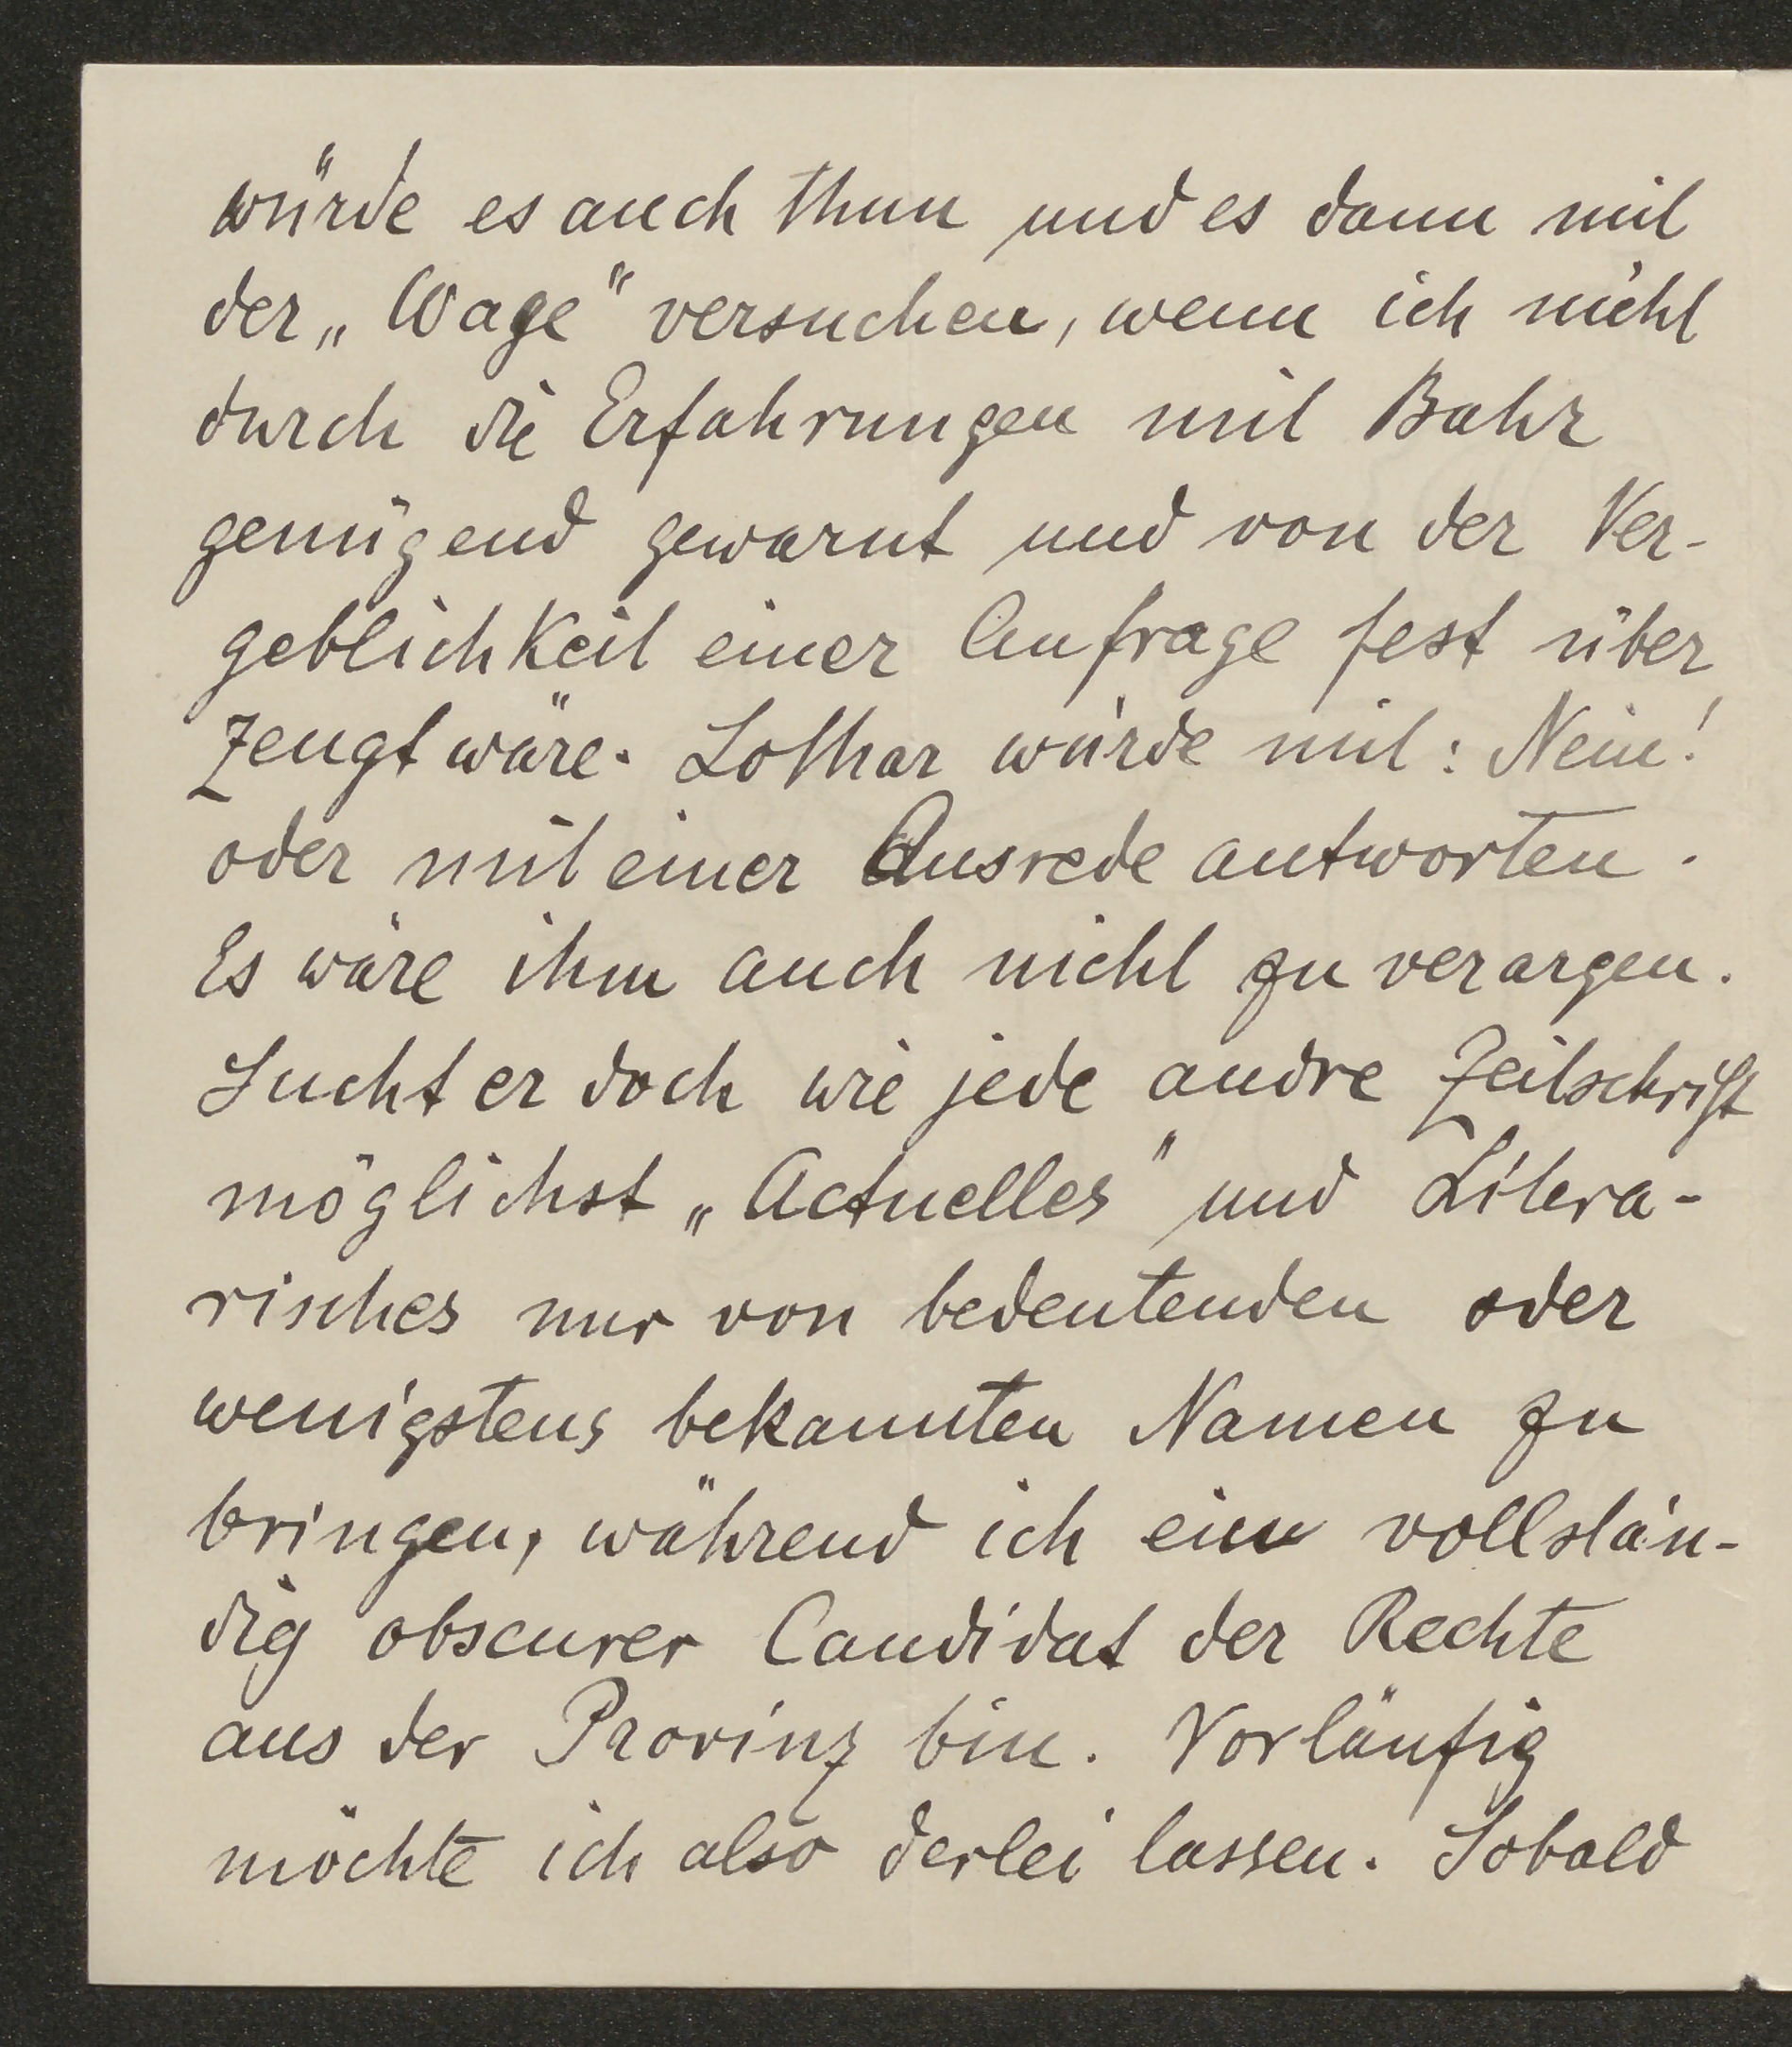 würde es auch thun und es dann mit
der „Wage" versuchen, wenn ich nicht
durch die Erfahrungen mit Bahr
genügend gewarnt und von der Ver-
geblichkeit einer Anfrage fest über
zeugt wäre. Lothar würde mit: Nein!
oder mit einer Ausrede antworten.
Es wäre ihm auch nicht zu verargen.
Sucht er doch wie jede andre Zeitschrift
möglichst „Actuelles" und Litera-
risches nur von bedeutenden oder
wenigstens bekannten Namen zu
bringen, während ich ein vollstän-
dig obscurer Candidat der Rechte
aus der Provinz bin. Vorläufig
möchte ich also derlei lassen. Sobald